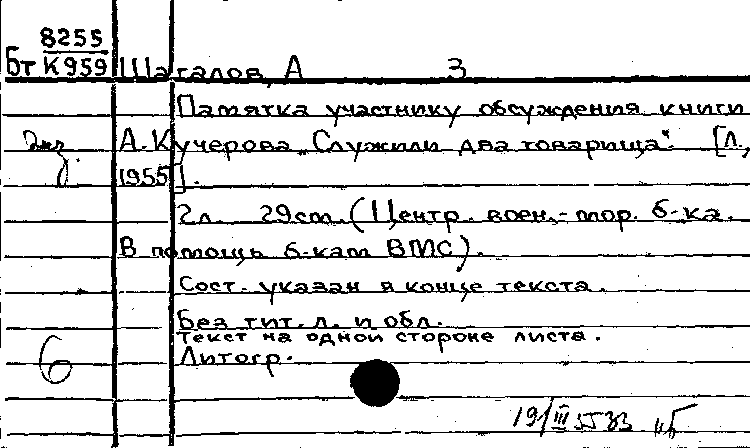 8255
Бт К959 Шаталов, А З
Памятка участнику обсуждения книги
Экз. А. Кучерова „Служили два товарища". [Л.,
1955].
2л. 29cm. (Центр. воен.-мор. б-ка.
В помощь б-кам ВМС).
Сост. указан в конце текста.
Без тит. л. и обл.
Текст на одной стороне листа.
6 Литогр.
19/III 55